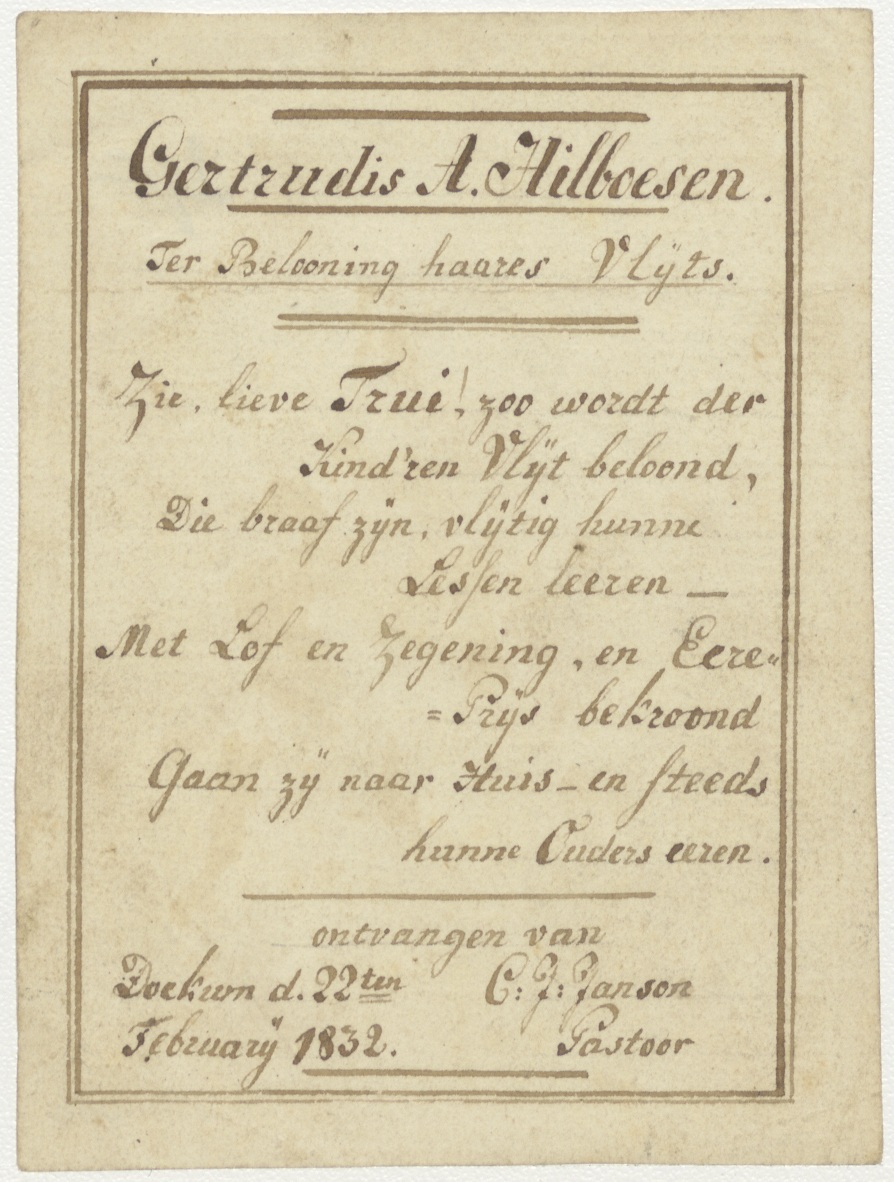 Gertrudis A. Hilboesen.
Ter Belooning haares Vlÿts.
Zie, lieve Trui! zoo wordt der
Kind'ren Vlÿt beloond,
Die braaf zÿn, vlÿtig hunne
Lesſen leeren —
Met Lof en Zegening, en Eere=
=Prÿs bekroond
Gaan zÿ naar Huis - en ſteeds
hunne Ouders eeren.
ontvangen van
Dockum d. 22ten C: J: Janson
Februarÿ 1832. Pastoor